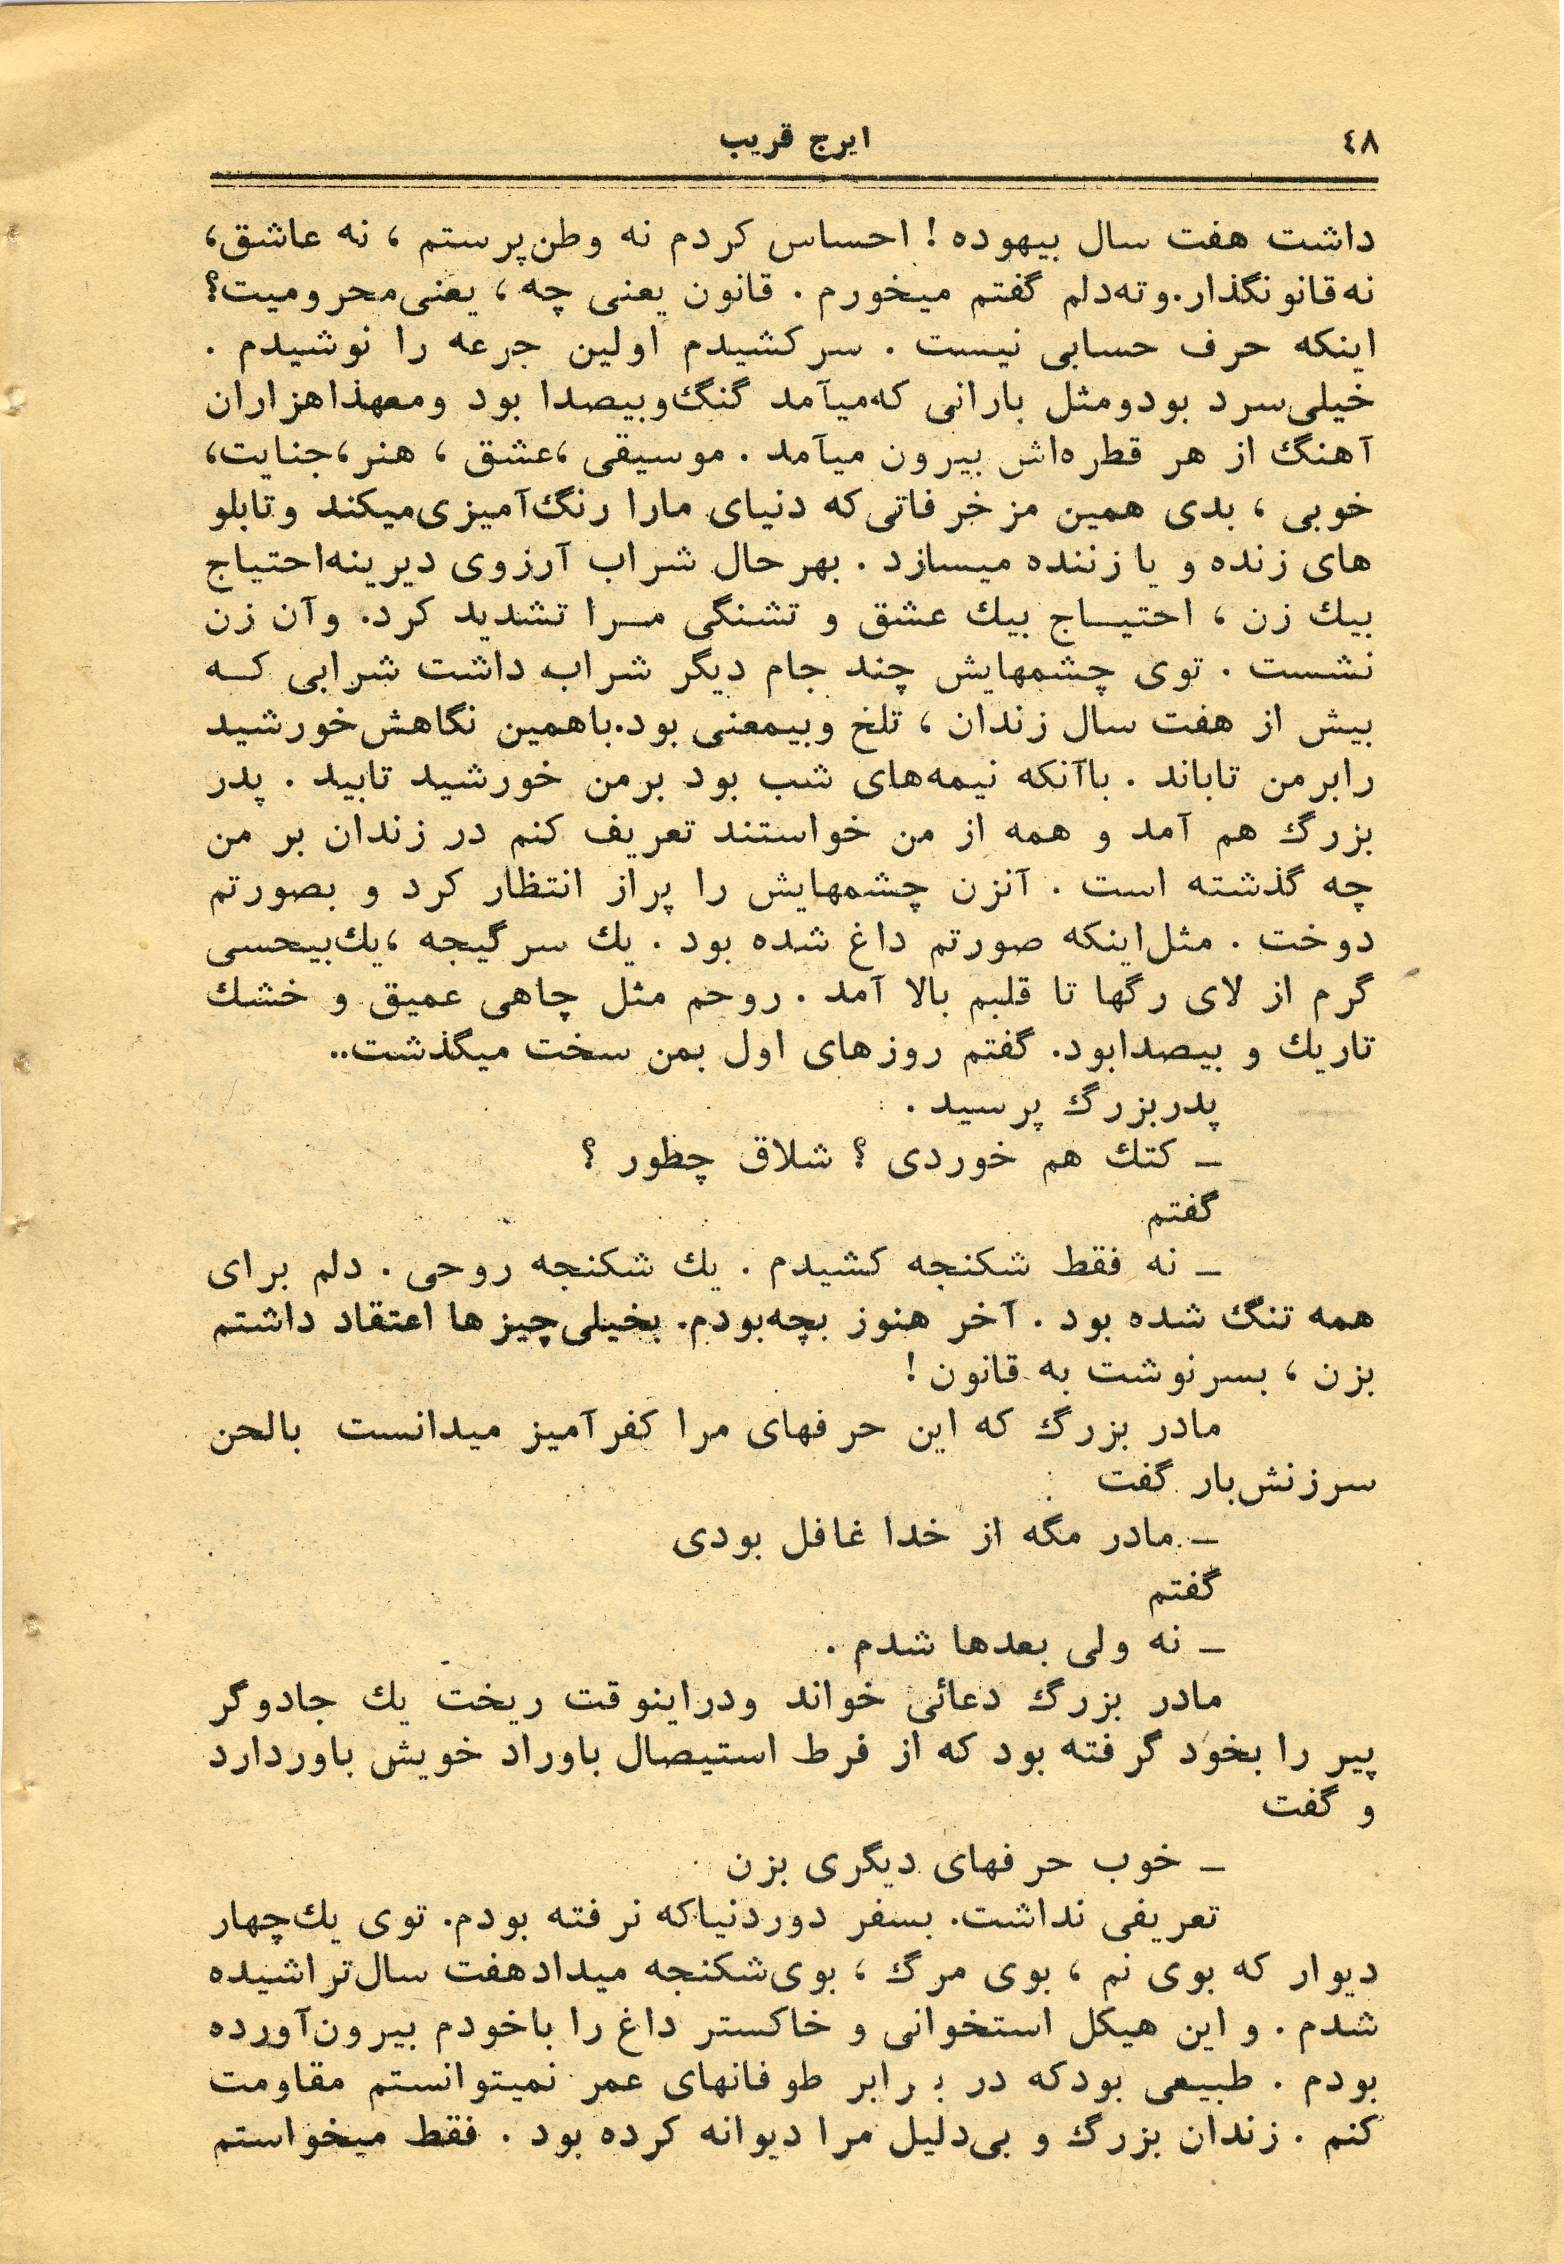 ٤٨
ایرج قریب
داشت هفت سال بیهوده ! احساس کردم نه وطن‌پرستم ، نه عاشق،
نه قانونگذار. وته‌دلم گفتم میخورم . قانون یعنی چه ، یعنی‌محرومیت؟
اینکه حرف حسابی نیست . سرکشیدم اولین جرعه را نوشیدم .
خیلی‌سرد بودومثل بارانی که‌میآمد گنگ‌وبیصدا بود ومعهذاهزاران
آهنگ از هر قطره‌اش بیرون میآمد . موسیقی ،عشق ، هنر،جنایت،
خوبی ، بدی همین مزخرفاتی‌که دنیای مارا رنگ‌آمیزی‌میکند وتابلو
های زنده و یا زننده میسازد . بهرحال شراب آرزوی دیرینه‌احتیاج
بیك زن ، احتیـاج بیك عشق و تشنگی مـرا تشدید کرد. وآن زن
نشست . توی چشمهایش چند جام دیگر شراب داشت شرابی کـه
بیش از هفت سال زندان ، تلخ وبیمعنی بود.باهمین نگاهش‌خورشید
رابرمن تاباند . باآنکه نیمه‌های شب بود برمن خورشید تابید . پدر
بزرگ هم آمد و همه از من خواستند تعریف کنم در زندان بر من
چه گذشته است . آنزن چشمهایش را پراز انتظار کرد و بصورتم
دوخت . مثل‌اینکه صورتم داغ شده بود . یك سرگیجه ،یك‌بیحسی
گرم از لای رگها تا قلبم بالا آمد . روحم مثل چاهی عمیق و خشك
تاریك و بیصدابود. گفتم روزهای اول بمن سخت میگذشت..
پدربزرگ پرسید .
ـ کتك هم خوردی ؟ شلاق چطور ؟
گفتم
ـ نه فقط شکنجه کشیدم . یك شکنجه روحی . دلم برای
همه تنگ شده بود . آخر هنوز بچه‌بودم. بخیلی‌چیزها اعتقاد داشتم
بزن ، بسرنوشت به قانون !
مادر بزرگ که این حرفهای مرا کفرآمیز میدانست بالحن
سرزنش‌بار گفت
ـ مادر مگه از خدا غافل بودی
گفتم
ـ نه ولی بعدها شدم .
مادر بزرگ دعائی خواند ودراینوقت ریخت یك جادوگر
پیر را بخود گرفته بود که از فرط استیصال باوراد خویش باوردارد
و گفت
ـ خوب حرفهای دیگری بزن
تعریفی نداشت. بسفر دوردنیاکه نرفته بودم. توی یك‌چهار
دیوار که بوی نم ، بوی مرگ ، بوی‌شکنجه میدادهفت سال‌تراشیده
شدم . و این هیکل استخوانی و خاکستر داغ را باخودم بیرون‌آورده
بودم . طبیعی بودکه در برابر طوفانهای عمر نمیتوانستم مقاومت
کنم . زندان بزرگ و بی‌دلیل مرا دیوانه کرده بود . فقط میخواستم